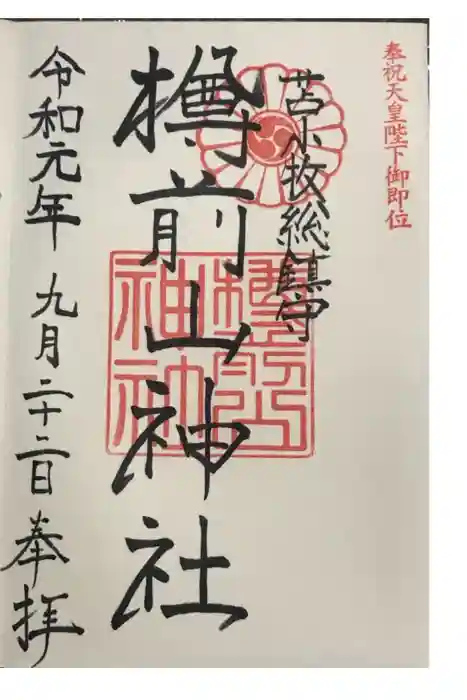 奉祝天皇陛下御即位
苫小牧総鎮守
樽前山神社
樽前山神社
令和元年九月二十二日奉拝